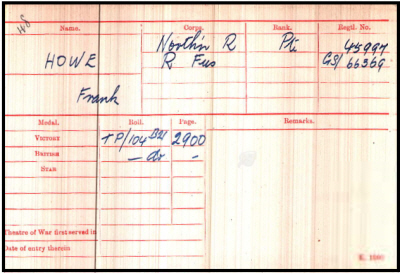 Name. Corps. Rank. Regtl. No.
HOWE North'n R Pte 45997
R Fus GS/66369
Frank
Medal. Roll. Page. Remarks.
VICTORY TP/104 B21 2900
BRITISH — do —
STAR
Theatre of War first served in
Date of entry therein
K. 1380